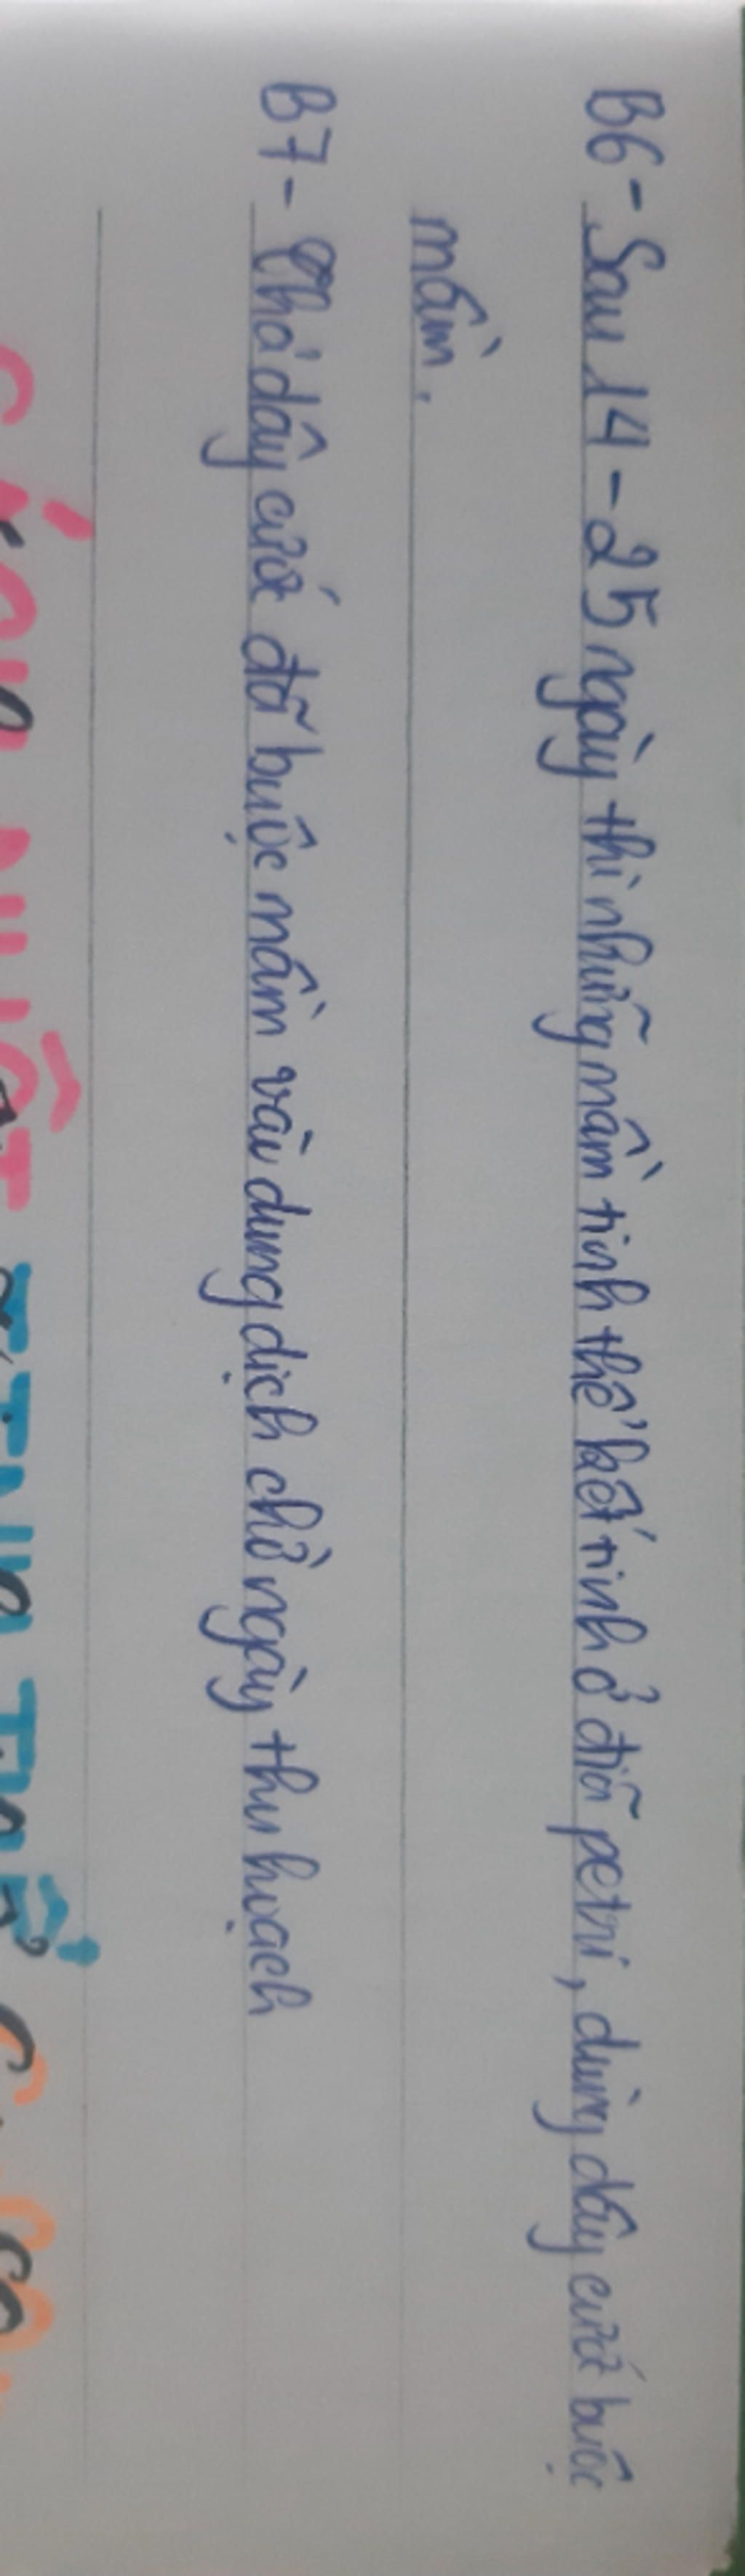 B6 - Sau 14 - 25 ngày thì những mầm tinh thể kết tinh ở đĩa petri, dùng dây cước buộc
mầm.
B7 - Thả dây cước đã buộc mầm vào dung dịch chờ ngày thu hoạch